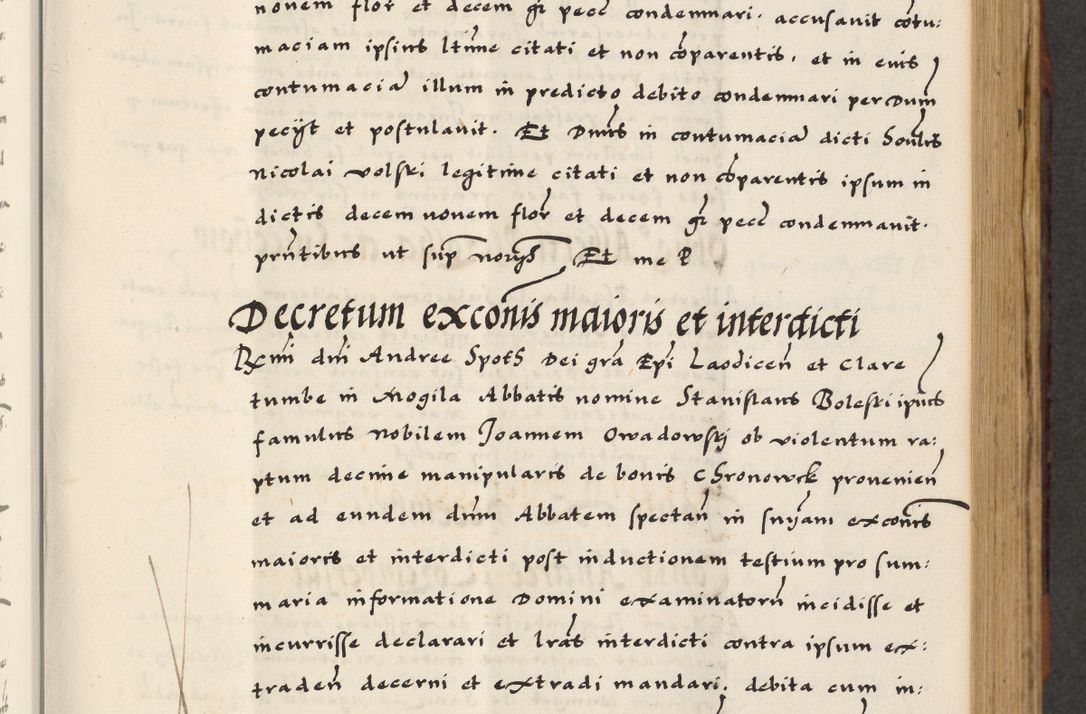 novem flor et decem gr pecc condemnari. accusavit cōtu:
maciam ipsius ltīme citati et non cōparentis, et in eius
contumaciā illum in predicto debito condemnari per Dūm
pecijt et postulavit. Et Dn̄us in contumaciā dicti
Nicolai volski legitime citati et non cōparentis ipsum in
dictis decem novem flor et decem gr pecc condemnavit.
prn̄tibus ut sup̄ Et me P
Decretum exconīs maioris et interdicti
Rmi dn̄i Andree Spot Dei grā Epī Laodiceñ et Clare
tumbe in Mogila Abbatis nomine Stanislaus Boleski ipīus
famulus nobilem Joannem Owadowskj ob violentum ra:
ptum decime manipularis de bonis Chronowek provenieñ
et ad eundem dnm Abbatem spectañ in snÿam exconīs
maioris et interdicti post inductionem testium pro sum:
maria informatione Domini examinatorū incidisse et
incurrisse declarari et lrās interdicti contra ipsum ex:
tradeñ decerni et extradi mandari, debita cum in: